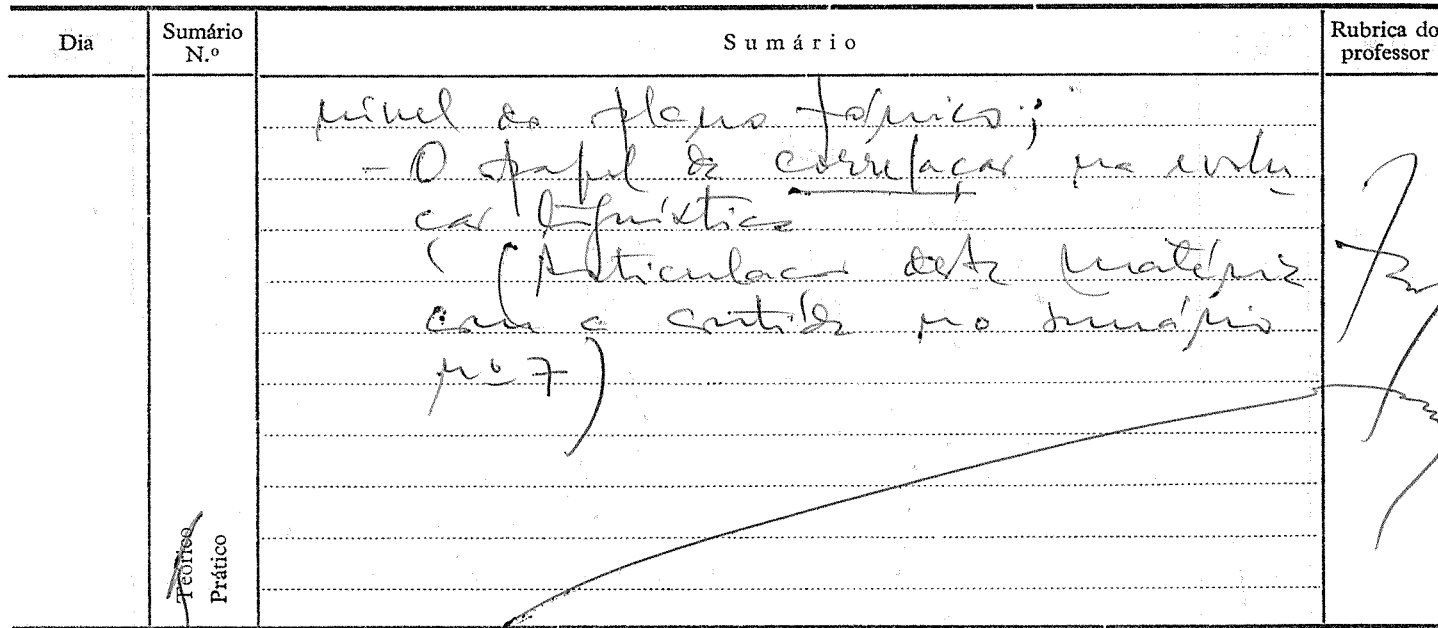 Dia
Sumário
N.º
Sumário
Rubrica do
professor
nível do plano fónico;
- O papel da correlação na evolu
ção linguística
(Articulação desta matéria
com a contida no sumário
nº 7)
Teórico
Prático